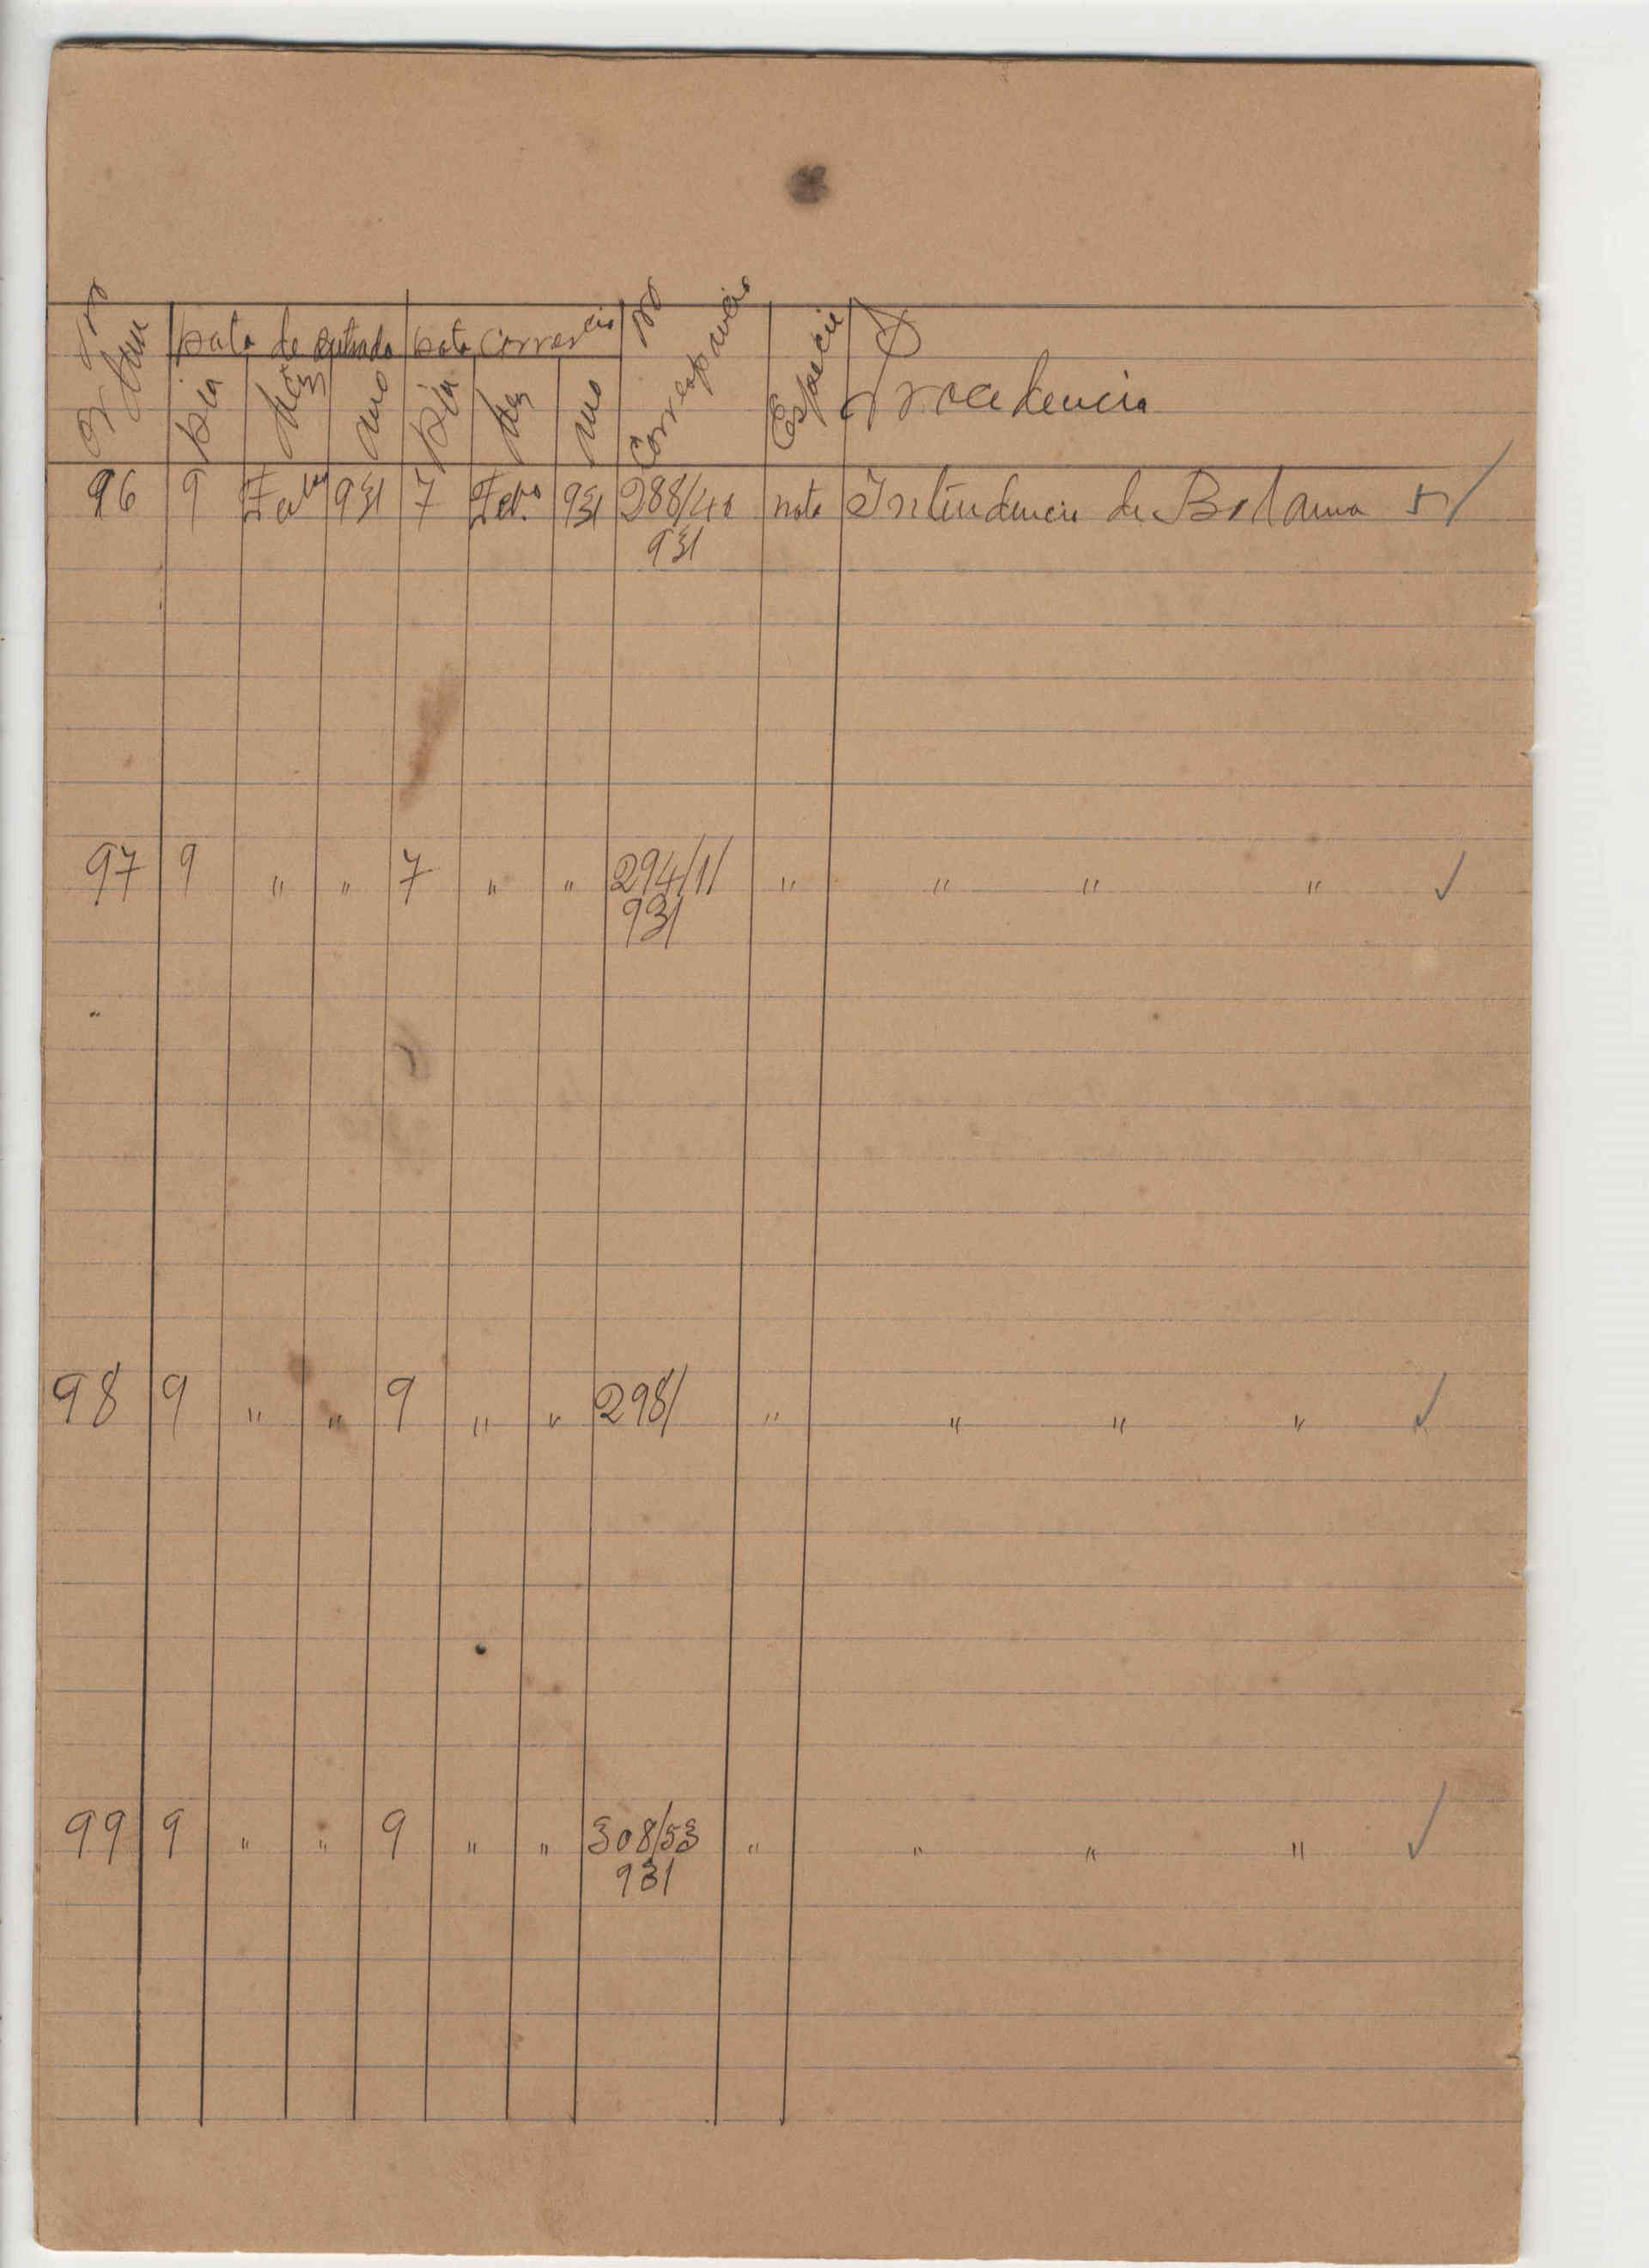 Nº Ordem Data de entrada Data Correscia Nº Correspancia Especie Procedencia
Dia Mês Ano Dia Mês Ano
96 9 Fevº 931 7 Fevº 931 288/41 nota Intendencia de Bolama
931
97 9 " " 7 " " 294/11 " " " " ✓
931
98 9 " " 9 " " 298/ " " " " ✓
99 9 " " 9 " " 308/53 " " " " ✓
931